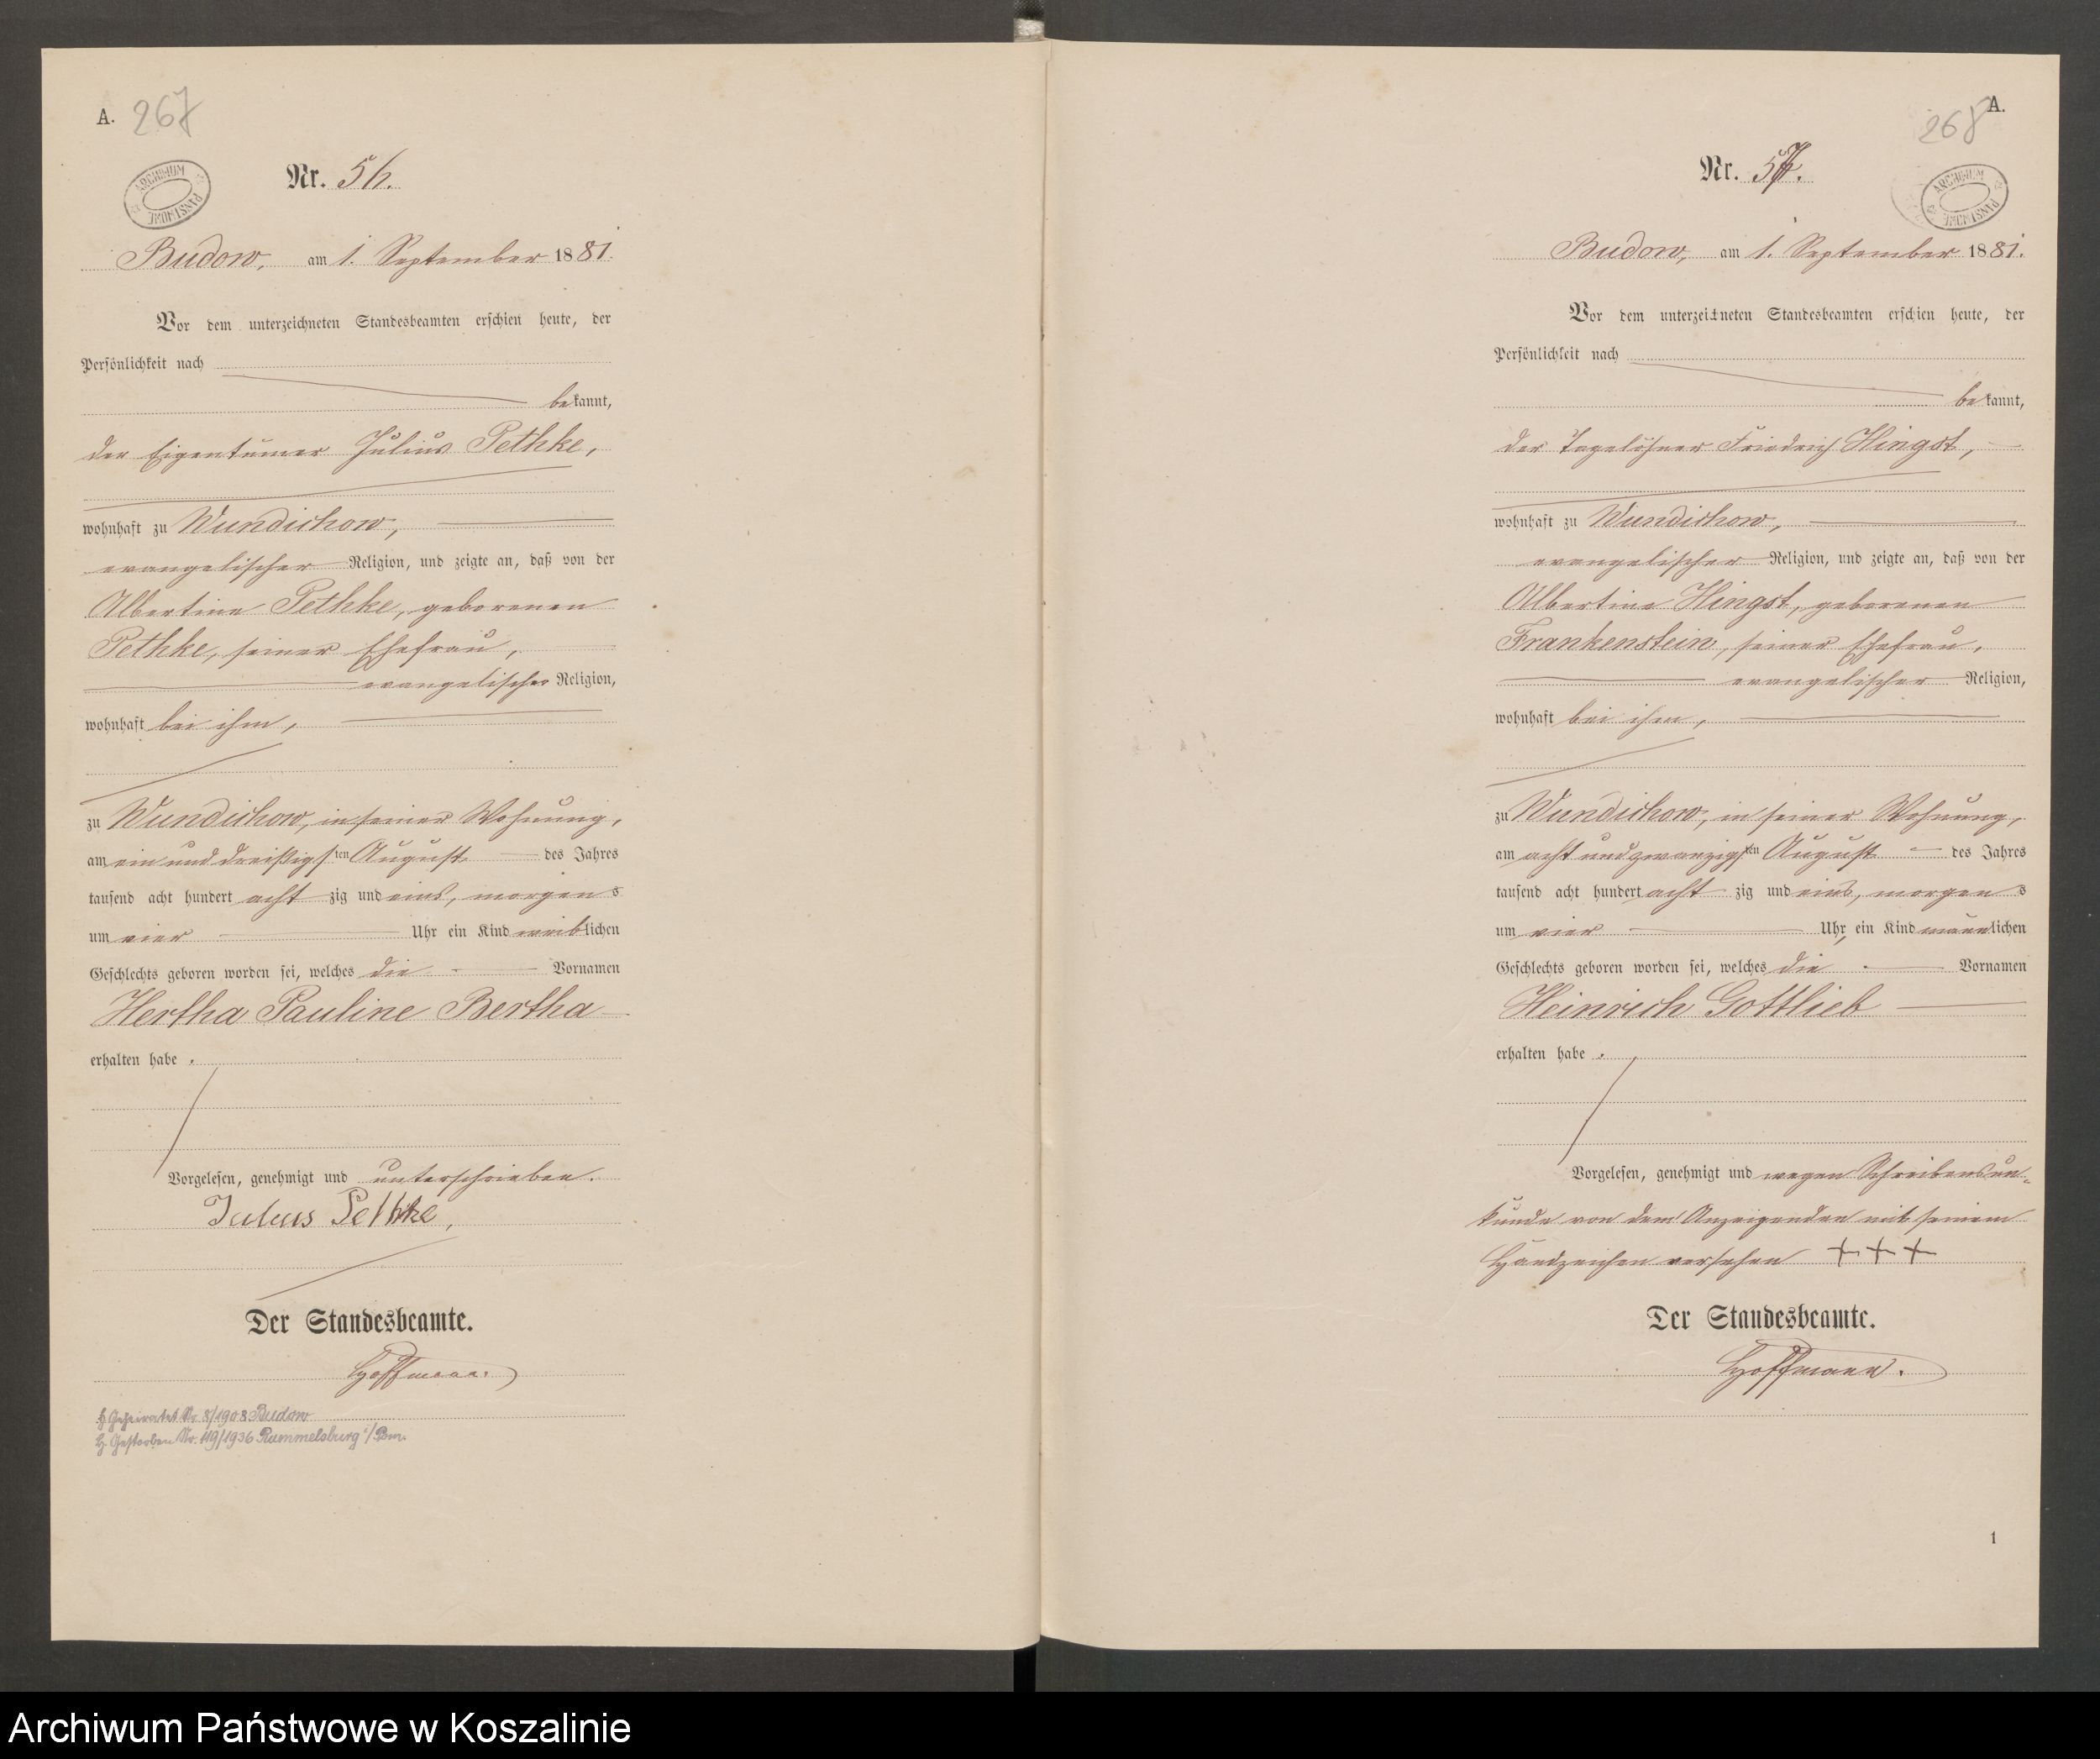 A. 267
ARCHIWUM PAŃSTWOWE
Nr. 56.
Budow, am 1. September 1881.
Vor dem unterzeichneten Standesbeamten erschien heute, der
Persönlichkeit nach
bekannt,
der Eigentümer Julius Pethke,
wohnhaft zu Wundichow,
evangelischer Religion, und zeigte an, daß von der
Albertine Pethke, geborenen
Pethke, seiner Ehefrau,
evangelischer Religion,
wohnhaft bei ihm,
zu Wundichow, in seiner Wohnung,
am ein und dreißigsten August des Jahres
tausend acht hundert achtzig und eins, morgens
um vier Uhr ein Kind weiblichen
Geschlechts geboren worden sei, welches die Vornamen
Hertha Pauline Bertha
erhalten habe.
Vorgelesen, genehmigt und unterschrieben.
Julius Pethke,
Der Standesbeamte.
Hoffmann.
H. Geheiratet Nr. 8/1908 Budow
H. Gestorben Nr. 119/1936 Rummelsburg i/Pom.
268 A.
ARCHIWUM PAŃSTWOWE
Nr. 57.
Budow, am 1. September 1881.
Vor dem unterzeichneten Standesbeamten erschien heute, der
Persönlichkeit nach
bekannt,
der Tagelöhner Friedrich Hingst,
wohnhaft zu Wundichow,
evangelischer Religion, und zeigte an, daß von der
Albertine Hingst, geborenen
Frankenstein, seiner Ehefrau,
evangelischer Religion,
wohnhaft bei ihm,
zu Wundichow, in seiner Wohnung,
am acht und zwanzigsten August des Jahres
tausend acht hundert achtzig und eins, morgens
um vier Uhr, ein Kind männlichen
Geschlechts geboren worden sei, welches die Vornamen
Heinrich Gottlieb
erhalten habe.
Vorgelesen, genehmigt und wegen Schreibensun-
kunde von dem Anzeigenden mit seinem
Handzeichen versehen +++
Der Standesbeamte.
Hoffmann.
1
Archiwum Państwowe w Koszalinie